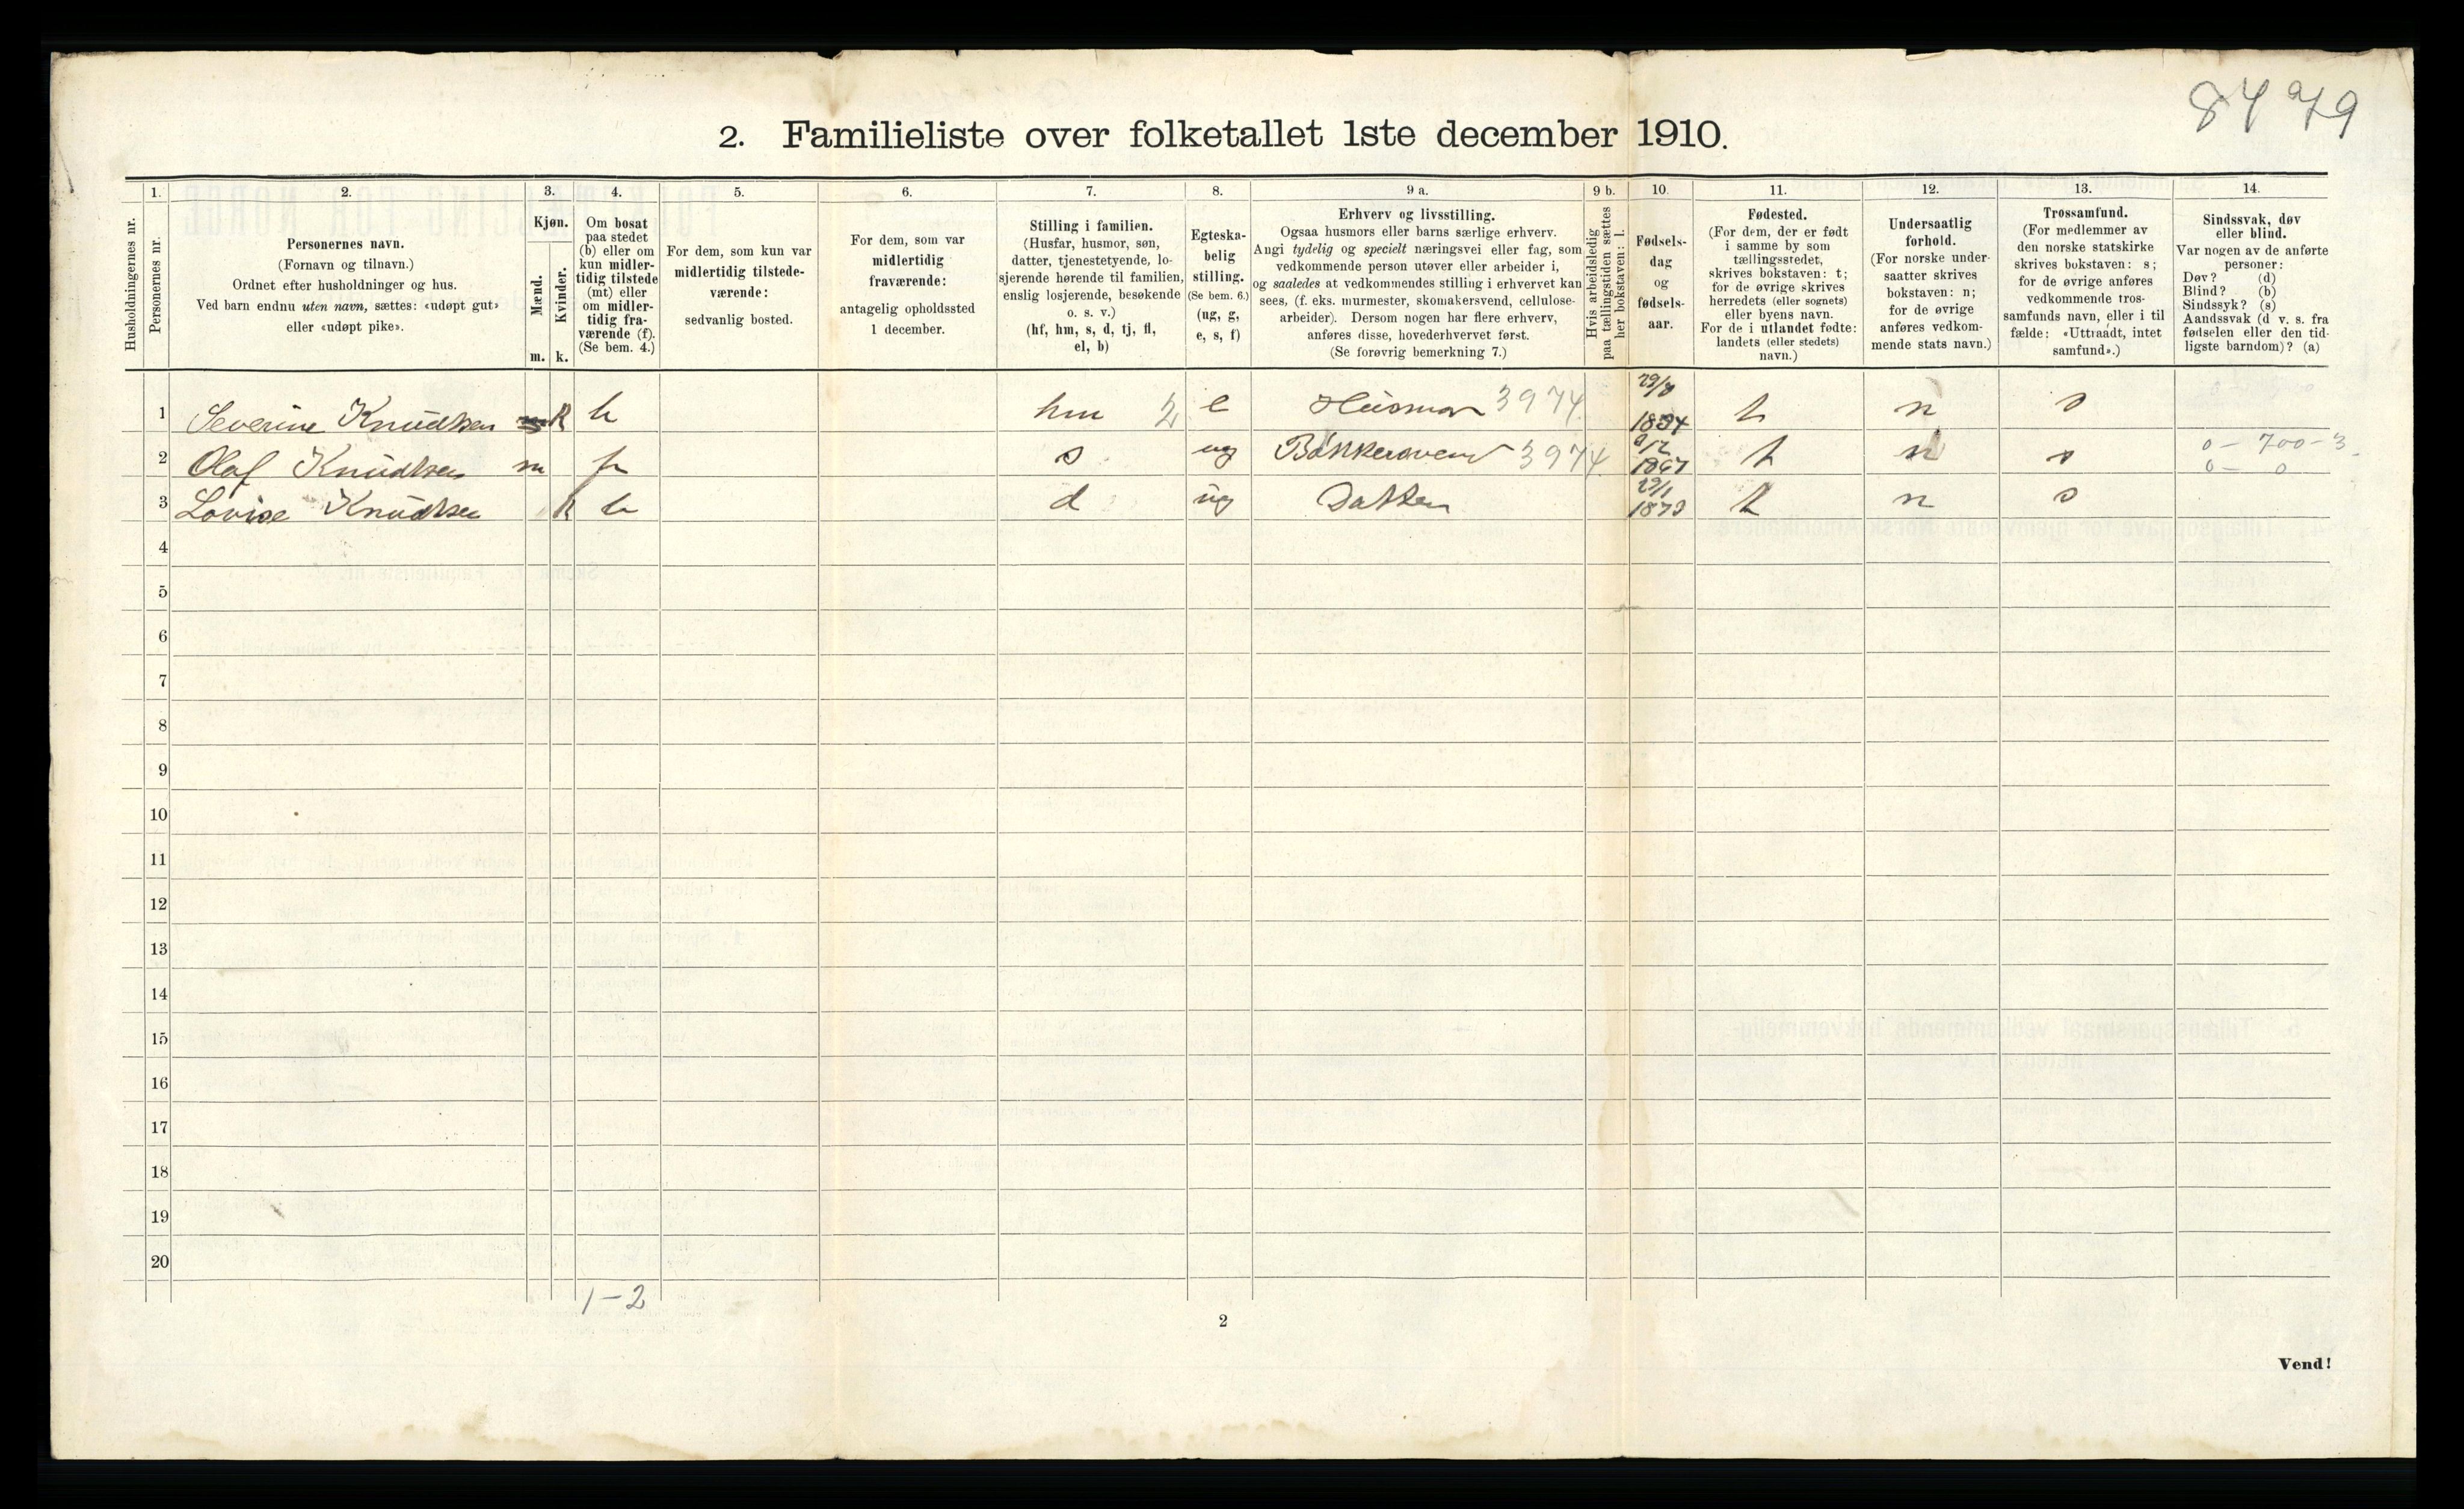 8479
2. Familieliste over folketallet 1ste december 1910.
1. 2. 3. 4. 5. 6. 7. 8. 9 a. 9 b. 10. 11. 12. 13. 14.
Husholdningernes nr.
Personernes nr.
Personernes navn.
(Fornavn og tilnavn.)
Ordnet efter husholdninger og hus.
Ved barn endnu uten navn, sættes: «udøpt gut»
eller «udøpt pike».
Kjøn.
Mænd.
Kvinder.
m. k.
Om bosat
paa stedet
(b) eller om
kun midler-
tidig tilstede
(mt) eller
om midler-
tidig fra-
værende (f).
(Se bem. 4.)
For dem, som kun var
midlertidig tilstede-
værende:
sedvanlig bosted.
For dem, som var
midlertidig
fraværende:
antagelig opholdssted
1 december.
Stilling i familien.
(Husfar, husmor, søn,
datter, tjenestetyende, lo-
sjerende hørende til familien,
enslig losjerende, besøkende
o. s. v.)
(hf, hm, s, d, tj, fl,
el, b)
Egteska-
belig
stilling.
(Se bem. 6.)
(ug, g,
e, s, f)
Erhverv og livsstilling.
Ogsaa husmors eller barns særlige erhverv.
Angi tydelig og specielt næringsvei eller fag, som
vedkommende person utøver eller arbeider i,
og saaledes at vedkommendes stilling i erhvervet kan
sees, (f. eks. murmester, skomakersvend, cellulose-
arbeider). Dersom nogen har flere erhverv,
anføres disse, hovederhvervet først.
(Se forøvrig bemerkning 7.)
Hvis arbeidsledig
paa tællingstiden sættes
her bokstaven: l.
Fødsels-
dag
og
fødsels-
aar.
Fødested.
(For dem, der er født
i samme by som
tællingsstedet,
skrives bokstaven: t;
for de øvrige skrives
herredets (eller sognets)
eller byens navn.
For de i utlandet fødte:
landets (eller stedets)
navn.)
Undersaatlig
forhold.
(For norske under-
saatter skrives
bokstaven: n;
for de øvrige
anføres vedkom-
mende stats navn.)
Trossamfund.
(For medlemmer av
den norske statskirke
skrives bokstaven: s;
for de øvrige anføres
vedkommende tros-
samfunds navn, eller i til
fælde: «Uttraadt, intet
samfund».)
Sindssvak, døv
eller blind.
Var nogen av de anførte
personer:
Døv? (d)
Blind? (b)
Sindssyk? (s)
Aandssvak (d v. s. fra
fødselen eller den tid-
ligste barndom)? (a)
1 Severine Knudtsen k b hm 2 e Husmor 3974 t n s
2 Olaf Knudtsen m s ug Bøkkersvend 3974 9/12 1867 t n s 0 - 700 - 3
0 - 0
3 Lovise Knudtsen k b d ug Datter 29/1 1873 t n s
4
5
6
7
8
9
10
11
12
13
14
15
16
17
18
19
20
1-2
2
Vend!